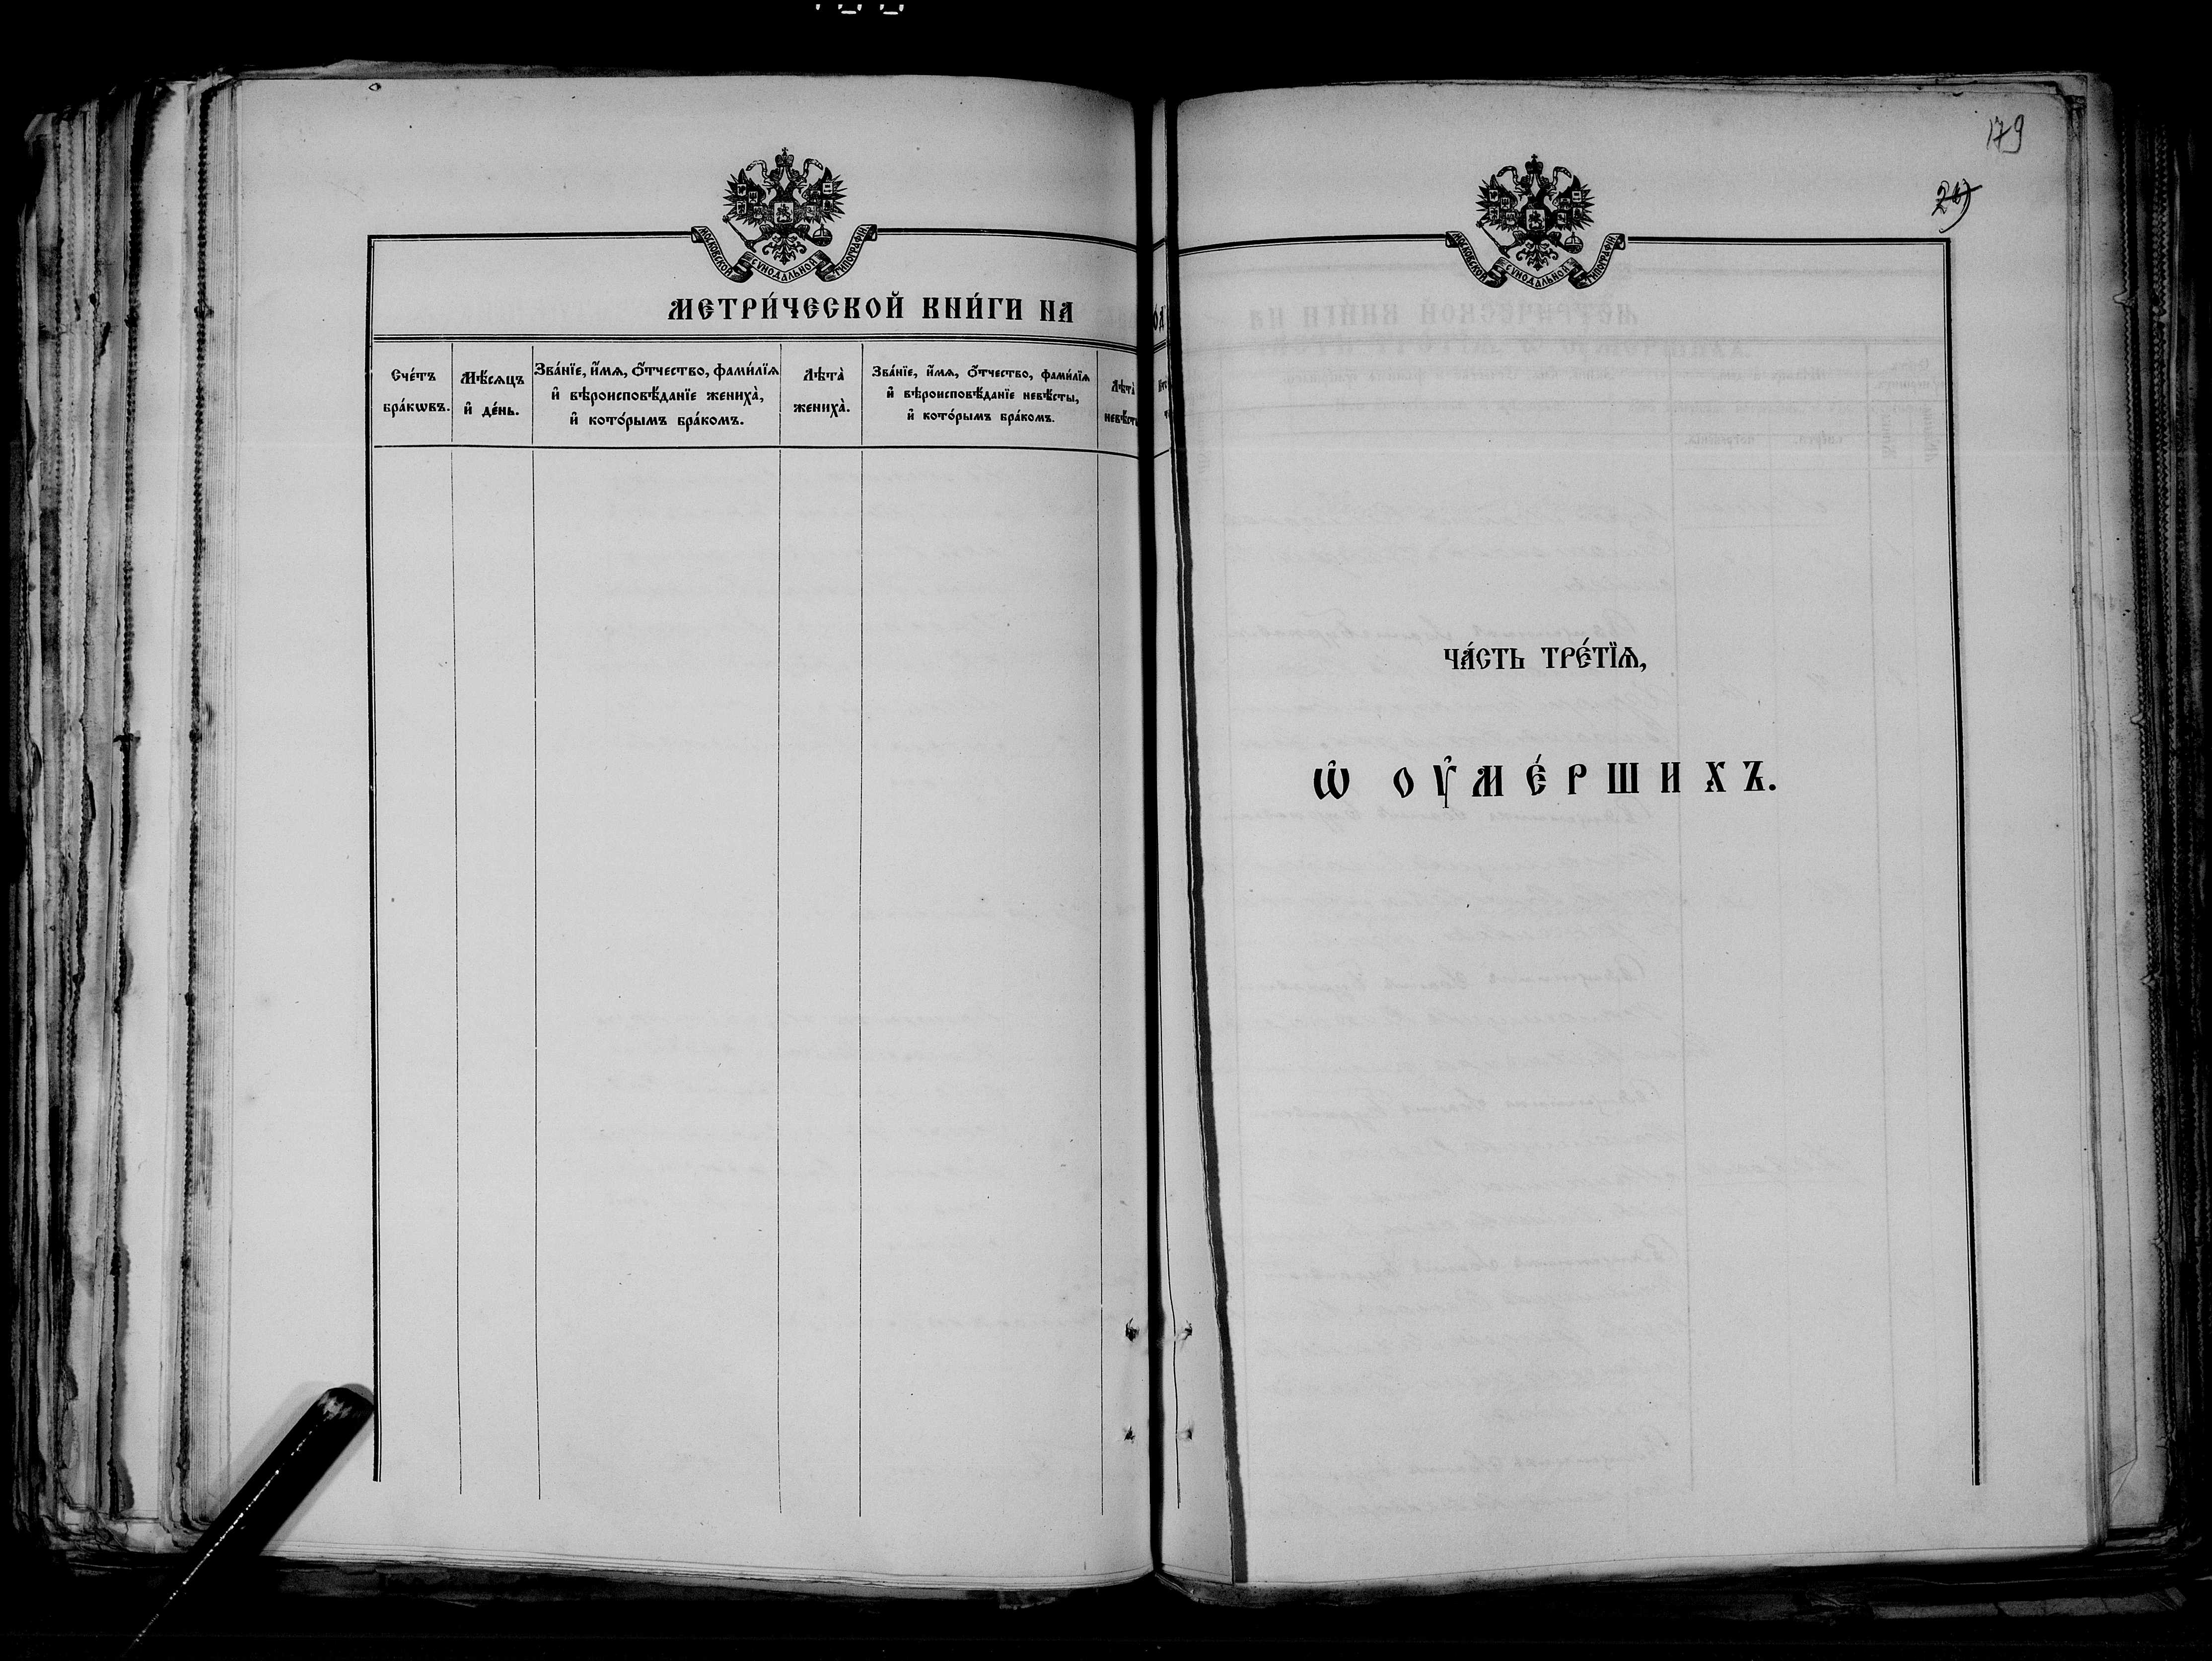 МОСКОВСКОЙ СѴНОДАЛЬНОЙ ТИПОГРАФІИ
МЕТРИ́ЧЕСКОЙ КНИ́ГИ НА
Сче́тъ бра́кѡвъ.
Мѣ́сѧцъ и҆ де́нь.
Зва́нїе, и҆́мѧ, ѻ҆́тчество, фами́лїѧ
и҆ вѣроисповѣ́данїе жениха̀,
и҆ кото́рымъ бра́комъ.
Лѣта̀ жениха̀.
Зва́нїе, и҆́мѧ, ѻ҆́тчество, фами́лїѧ
и҆ вѣроисповѣ́данїе невѣ́сты,
и҆ кото́рымъ бра́комъ.
Лѣта̀
179
МОСКОВСКОЙ СѴНОДАЛЬНОЙ ТИПОГРАФІИ
ЧА́СТЬ ТРЕ́ТЇѦ,
Ѡ҆ ОУ҆МЕ́РШИХЪ.